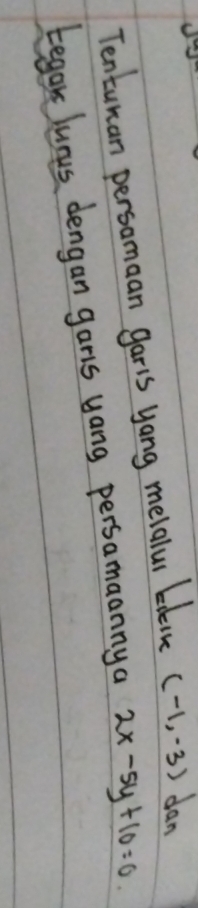 Tentukan persamaan garis yang melalui titik (-1,-3) dan
tegak lurus dengan garis yang persamaannya 2x-5y+10=0.